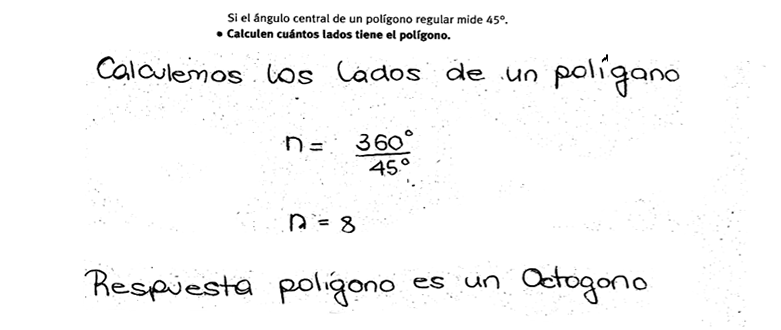 Si el ángulo central de un polígono regular mide 45º.
• Calculen cuántos lados tiene el polígono.
Calculemos los lados de un polígano
n = 360° / 45°
n = 8
Respuesta polígono es un Octogono